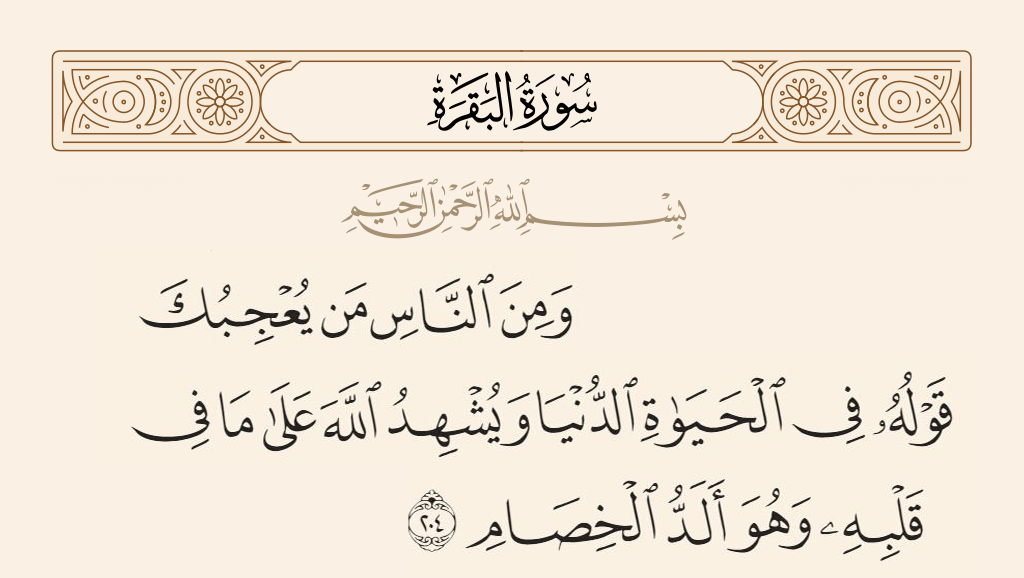 سُورَةُ البَقَرَةِ
بِسْمِ ٱللَّهِ ٱلرَّحْمَٰنِ ٱلرَّحِيمِ
وَمِنَ ٱلنَّاسِ مَن يُعْجِبُكَ
قَوْلُهُۥ فِى ٱلْحَيَوٰةِ ٱلدُّنْيَا وَيُشْهِدُ ٱللَّهَ عَلَىٰ مَا فِى
قَلْبِهِۦ وَهُوَ أَلَدُّ ٱلْخِصَامِ ٢٠٤